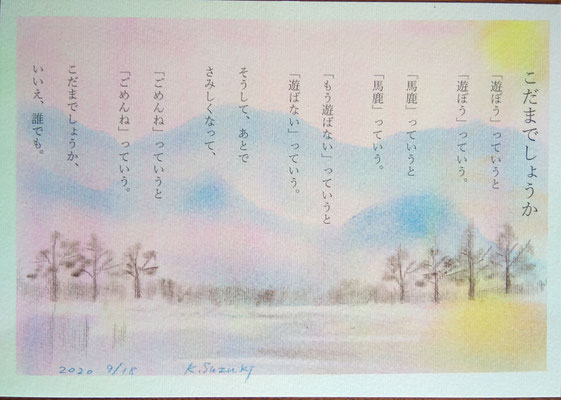 こだまでしょうか
「遊ぼう」っていうと
「遊ぼう」っていう。
「馬鹿」っていうと
「馬鹿」っていう。
「もう遊ばない」っていうと
「遊ばない」っていう。
そうして、あとで
さみしくなって、
「ごめんね」っていうと
「ごめんね」っていう。
こだまでしょうか、
いいえ、誰でも。
2020 9/18 K.Suzuki